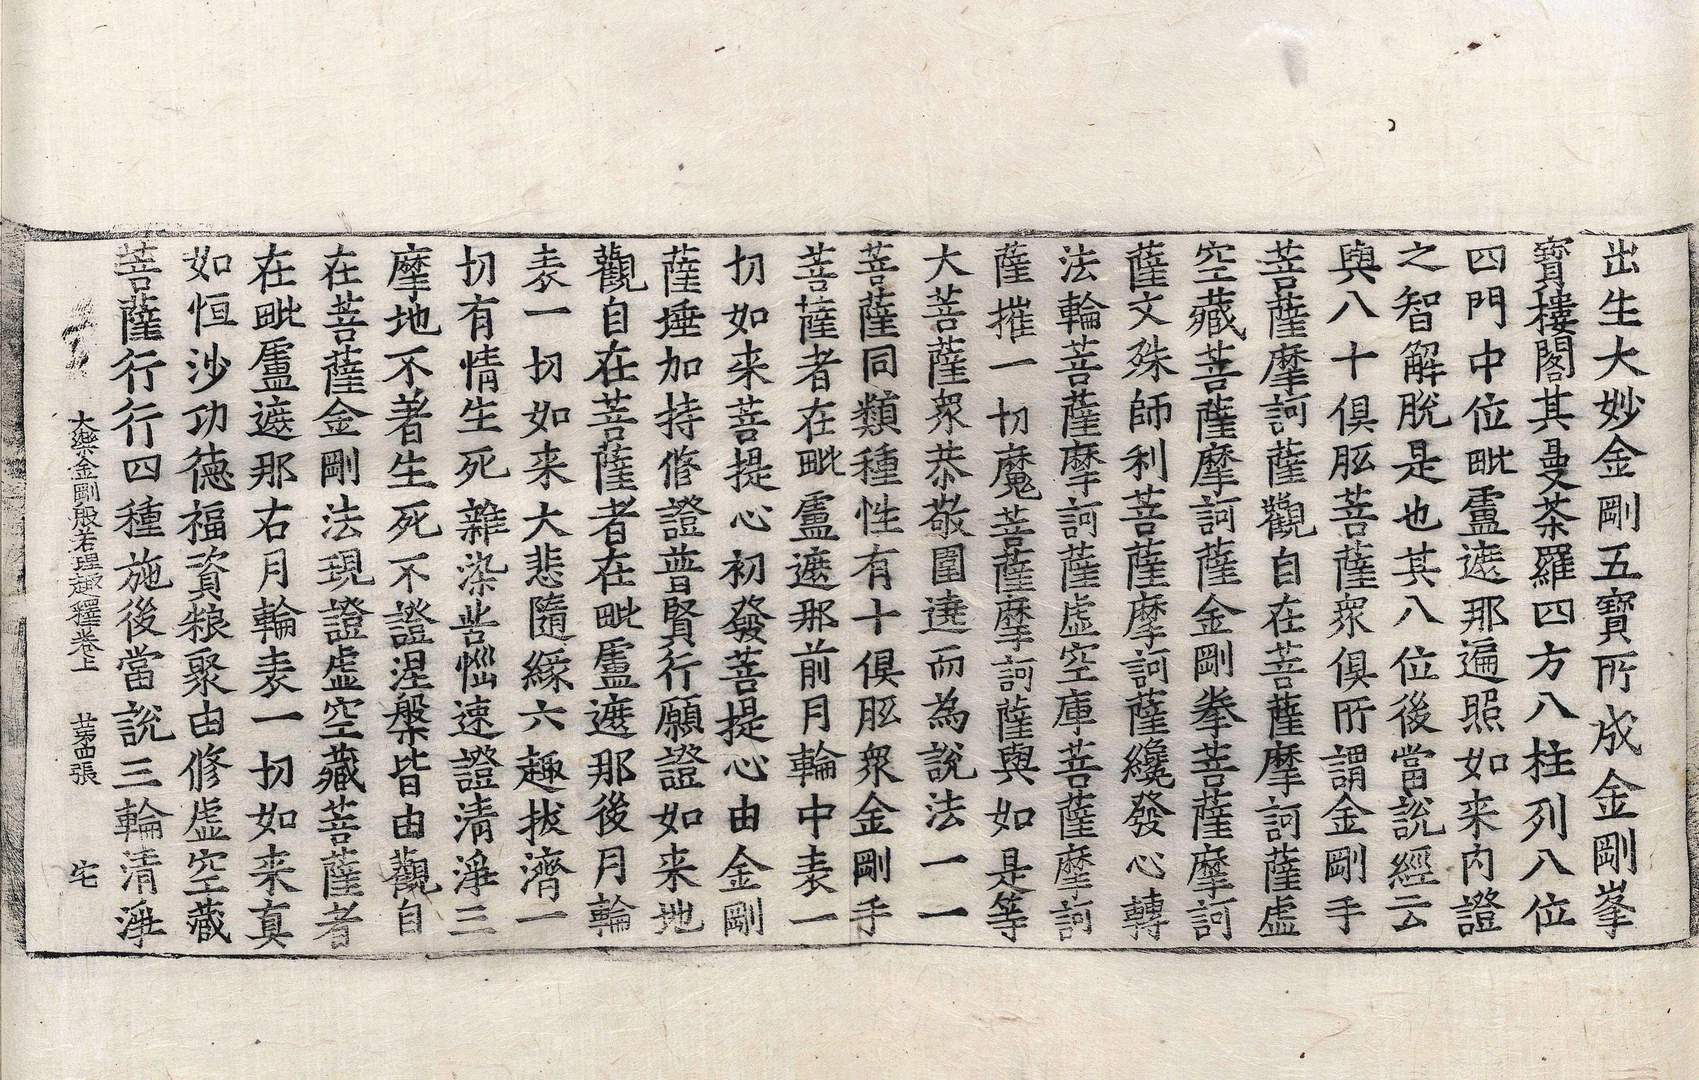 出生大妙金剛五寶所成金剛峯
寶樓閣其曼荼羅四方八柱列八位
四門中位毗盧遮那遍照如来内證
之智解脫是也其八位後當說經云
與八十俱胝菩薩衆俱所謂金剛手
菩薩摩訶薩觀自在菩薩摩訶薩虛
空藏菩薩摩訶薩金剛拳菩薩摩訶
薩文殊師利菩薩摩訶薩纔發心轉
法輪菩薩摩訶薩虛空庫菩薩摩訶
薩摧一切魔菩薩摩訶薩與如是等
大菩薩衆恭敬圍遶而為說法一一
菩薩同類種性有十俱胝衆金剛手
菩薩者在毗盧遮那前月輪中表一
切如来菩提心初發菩提心由金剛
薩埵加持修證普賢行願證如来地
觀自在菩薩者在毗盧遮那後月輪
表一切如来大悲隨緣六趣拔濟一
切有情生死雜染苦惱速證清淨三
摩地不著生死不證涅槃皆由觀自
在菩薩金剛法現證虛空藏菩薩者
在毗盧遮那右月輪表一切如来真
如恒沙功德福資粮聚由修虛空藏
菩薩行行四種施後當說三輪清淨
大樂金剛般若理趣釋卷上 第四張 宅